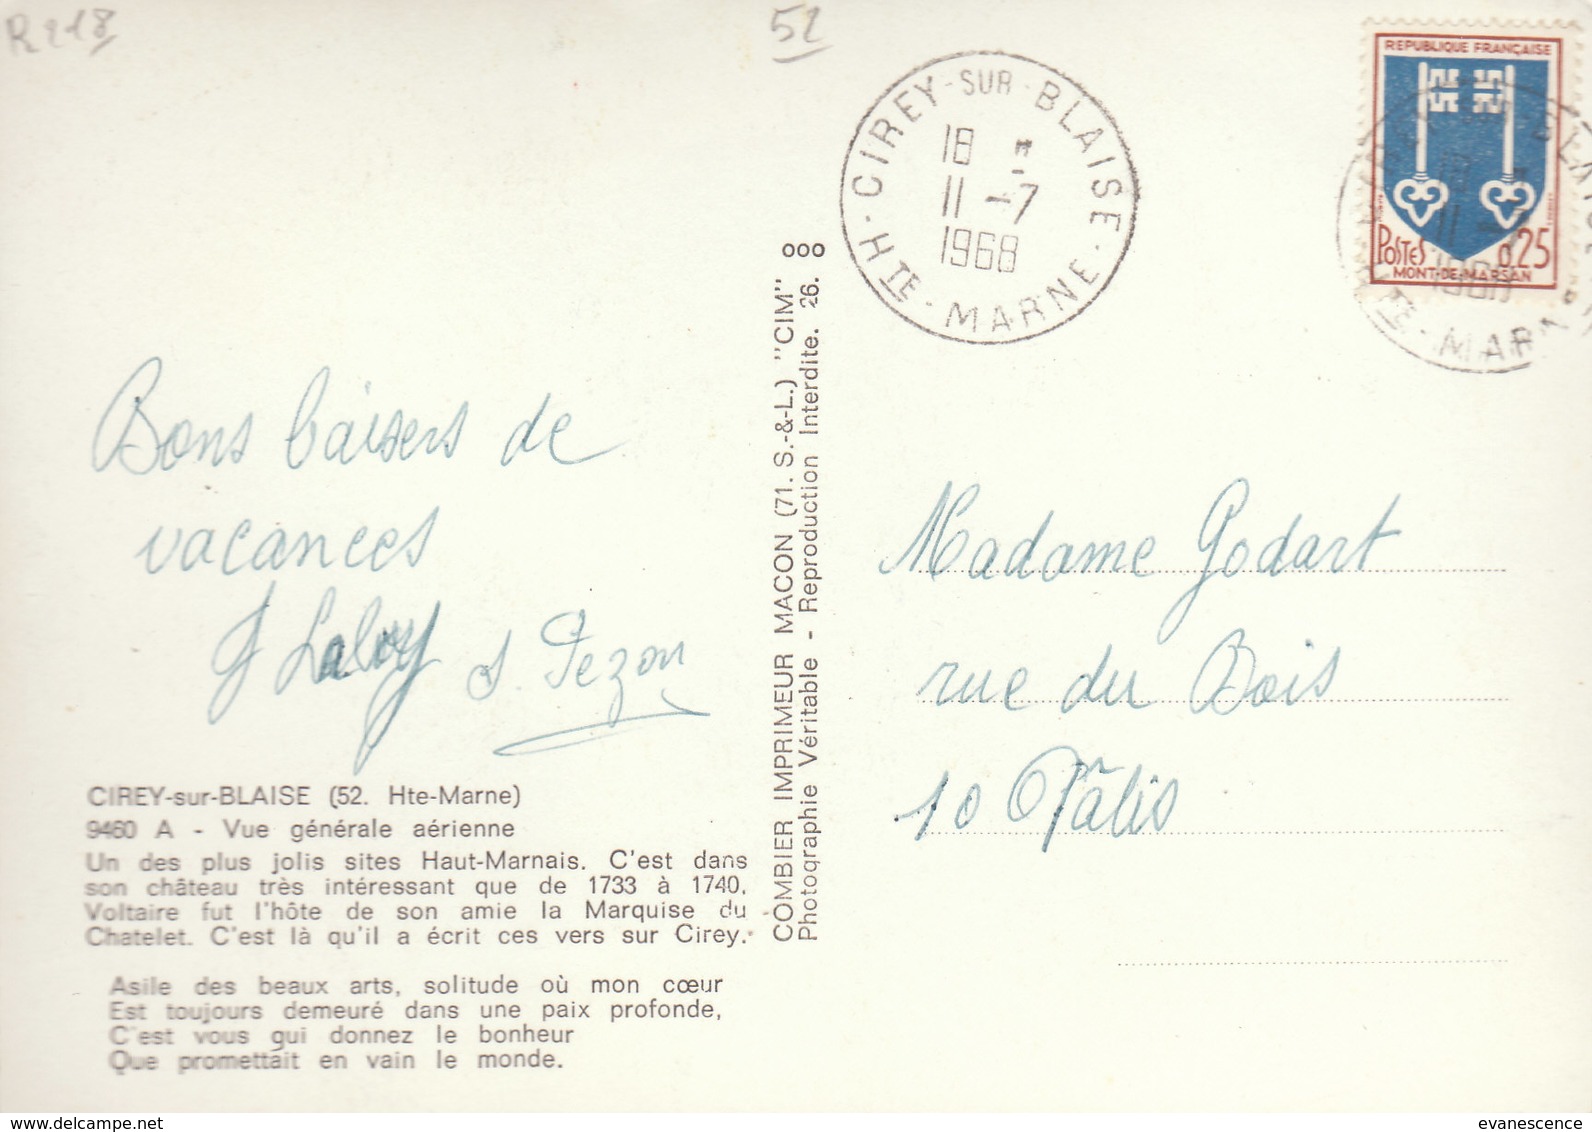 R 218
52
CIREY-SUR-BLAISE
18
11-7
1968
HTE-MARNE
REPUBLIQUE FRANÇAISE
POSTES 0,25
MONT-DE-MARSAN
Bons baisers de
vacances
Pezon
CIREY-sur-BLAISE (52. Hte-Marne)
9460 A - Vue générale aérienne
Un des plus jolis sites Haut-Marnais. C'est dans
son château très intéressant que de 1733 à 1740,
Voltaire fut l'hôte de son amie la Marquise du
Chatelet. C'est là qu'il a écrit ces vers sur Cirey.
Asile des beaux arts, solitude où mon cœur
Est toujours demeuré dans une paix profonde,
C'est vous qui donnez le bonheur
Que promettait en vain le monde.
COMBIER IMPRIMEUR MACON (71. S.-&-L.) "CIM"
Photographie Véritable - Reproduction Interdite. 26. ooo
Madame Godart
rue du Bois
10 Pâlis
evanescence